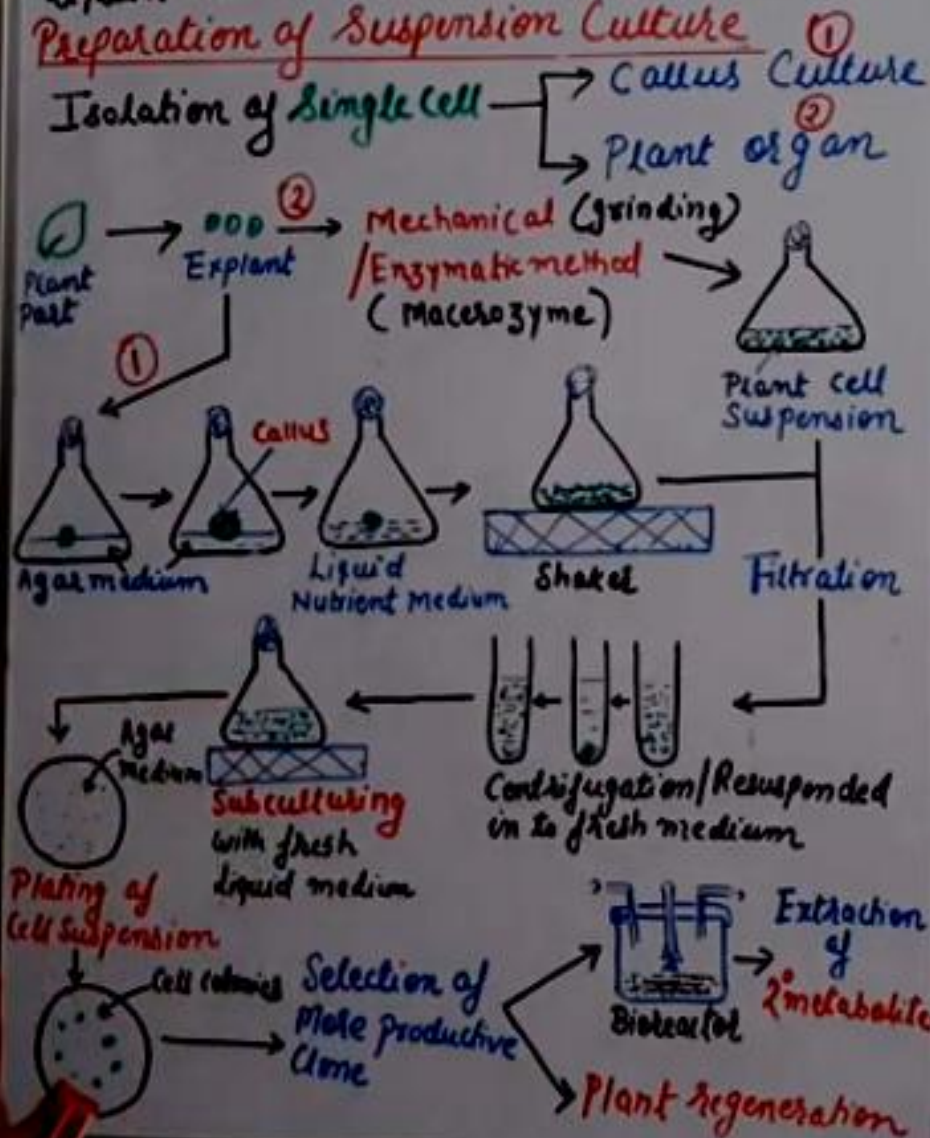 Preparation of Suspension Culture
Isolation of Single Cell
① Callus Culture
② Plant organ
Plant Part
Explant
②
Mechanical (grinding)
/Enzymatic method
(Macerozyme)
Plant Cell
Suspension
①
Callus
Agar medium
Liquid
Nutrient Medium
Shaker
Filtration
Centrifugation/Resuspended
in to fresh medium
Subculturing
with fresh
Liquid medium
Agar
Medium
Plating of
Cell Suspension
Cell Colonies
Selection of
More productive
Clone
Bioreactor
Extraction
of
2° metabolite
Plant regeneration